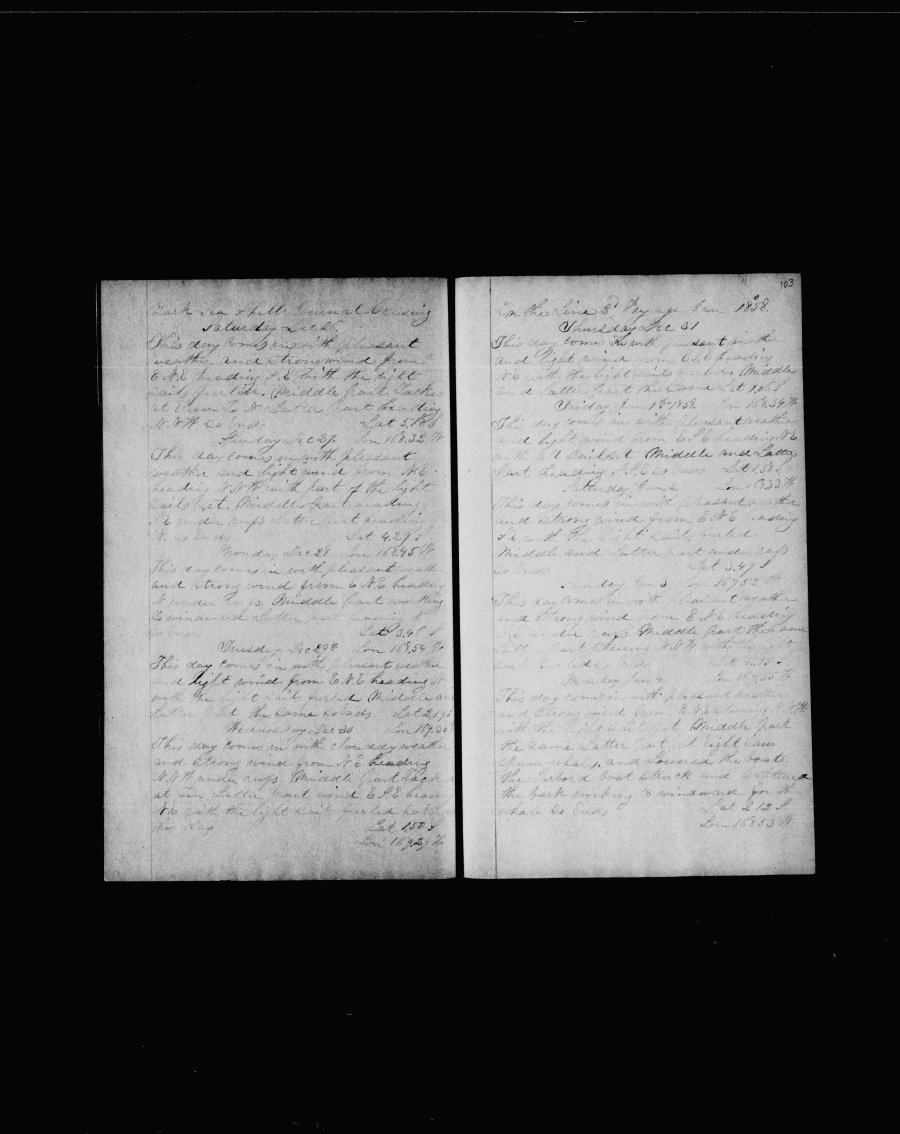 Bark Sea Shell Journal Cruising
Saturday Dec 26
This day comes in with pleasant
weather and strong wind from
E.N.E heading S.E with the light
sails furled. Middle part Tacked
at Latter part heading
N.N.W So Ends Lat 5.18 S
Sunday Dec 27. Lon 168.32 W
This day comes in with pleasant
weather and light wind from N.E
heading N.N.W with part of the light
sails set. Middle part heading
under reefs Latter part heading
N. So Ends Lat 4.29 S
Monday Dec 28 Lon 168.45 W
This day comes in with pleasant weather
and strong wind from E.N.E heading
N under reefs. Middle part working
to windward Latter part
So Ends Lat 3.45 S
Tuesday Dec 29th Lon 168.54 W
This day comes in with pleasant weather
and light wind from E.N.E heading N
with the light sails furled Middle and
Latter part the same So Ends Lat 2.19 S
Wednesday Dec 30 Lon 169.30
This day comes in with clouddy weather
and strong wind from N.E heading
N.N.W under reefs. Middle part Tacked
at Ten Latter part wind E.S.E heading
N.E with the light sails furled So Ends
this day Lat 1.50 S
Lon 169.29 W
103
On the Line 3d Voyage Jan 1858.
Thursday Dec 31
This day comes in with pleasant weather
and light wind from E.S.E heading
N.E with the light sails Middle
and Latter part the same Lat 1.06 S
Friday Jan 1st 1858. Lon 168.34 W
This day comes in with pleasant weather
and light wind from E.S.E heading N.E
with all sail set Middle and Latter
part heading S.S.E So Ends Lat 1.58 S
Saturday Jan 2 Lon 168.33 W
This day comes in with pleasant weather
and strong wind from E.N.E heading
S.E with the light sails furled
Middle and Latter part under reefs
So Ends Lat 3.49 S
Sunday Jan 3 Lon 167.52 W
This day comes in with pleasant weather
and strong wind from E.N.E heading
under reefs. Middle part the same
Latter part steering N.N.W with light
sails furled So Ends Lat
Monday Jan 4. Lon 167.55 W
This day comes in with pleasant weather
and strong wind from E.N.E steering N.N.W
with the light sails set. Middle part
the same Latter part at light saw
sperm whales, and Lowered the boats
the Larbord boat struck and captured
the bark working to windward for the
whale So Ends Lat 2.12 S
Lon 168.53 W